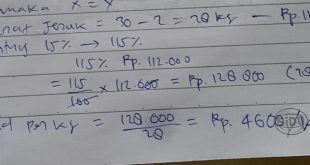 maka x = y
Jeruk = 30 - 2 = 28 kg — Rp 11
15% → 115%
115% Rp. 112.000
= 115/100 x 112.000 = Rp. 128.800 (28
per kg = 128.000/28 = Rp. 4600